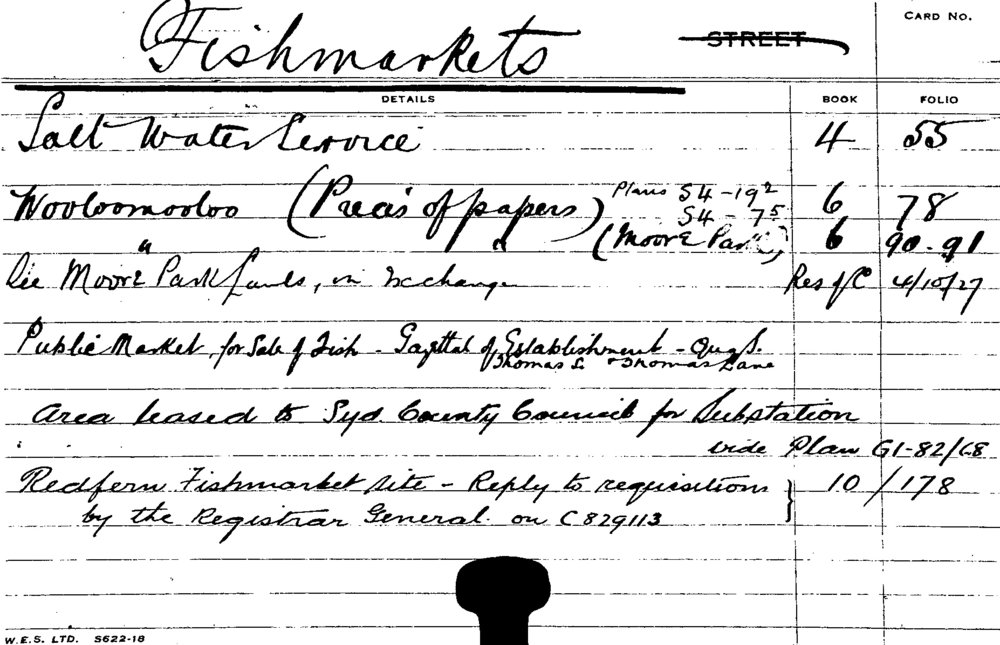 Fishmarkets STREET CARD No.
DETAILS BOOK FOLIO
Salt Water Service 4 55
Woolloomooloo (Precis of papers) Plans S4-19² 6 78
S4-7⁵
" " (Moore Park) 6 90-91
See Moore Park Lands, in Exchange Res of C 4/10/27
Public Market for Sale of Fish - Gazettal of Establishment - Quay S.
Thomas L. & Thomas Lane
Area leased to Syd. County Council for Substation
vide Plan G1-82/68
Redfern Fishmarket site - Reply to requisitions } 10/178
by the Registrar General on C829113
W.E.S. LTD. S622-18